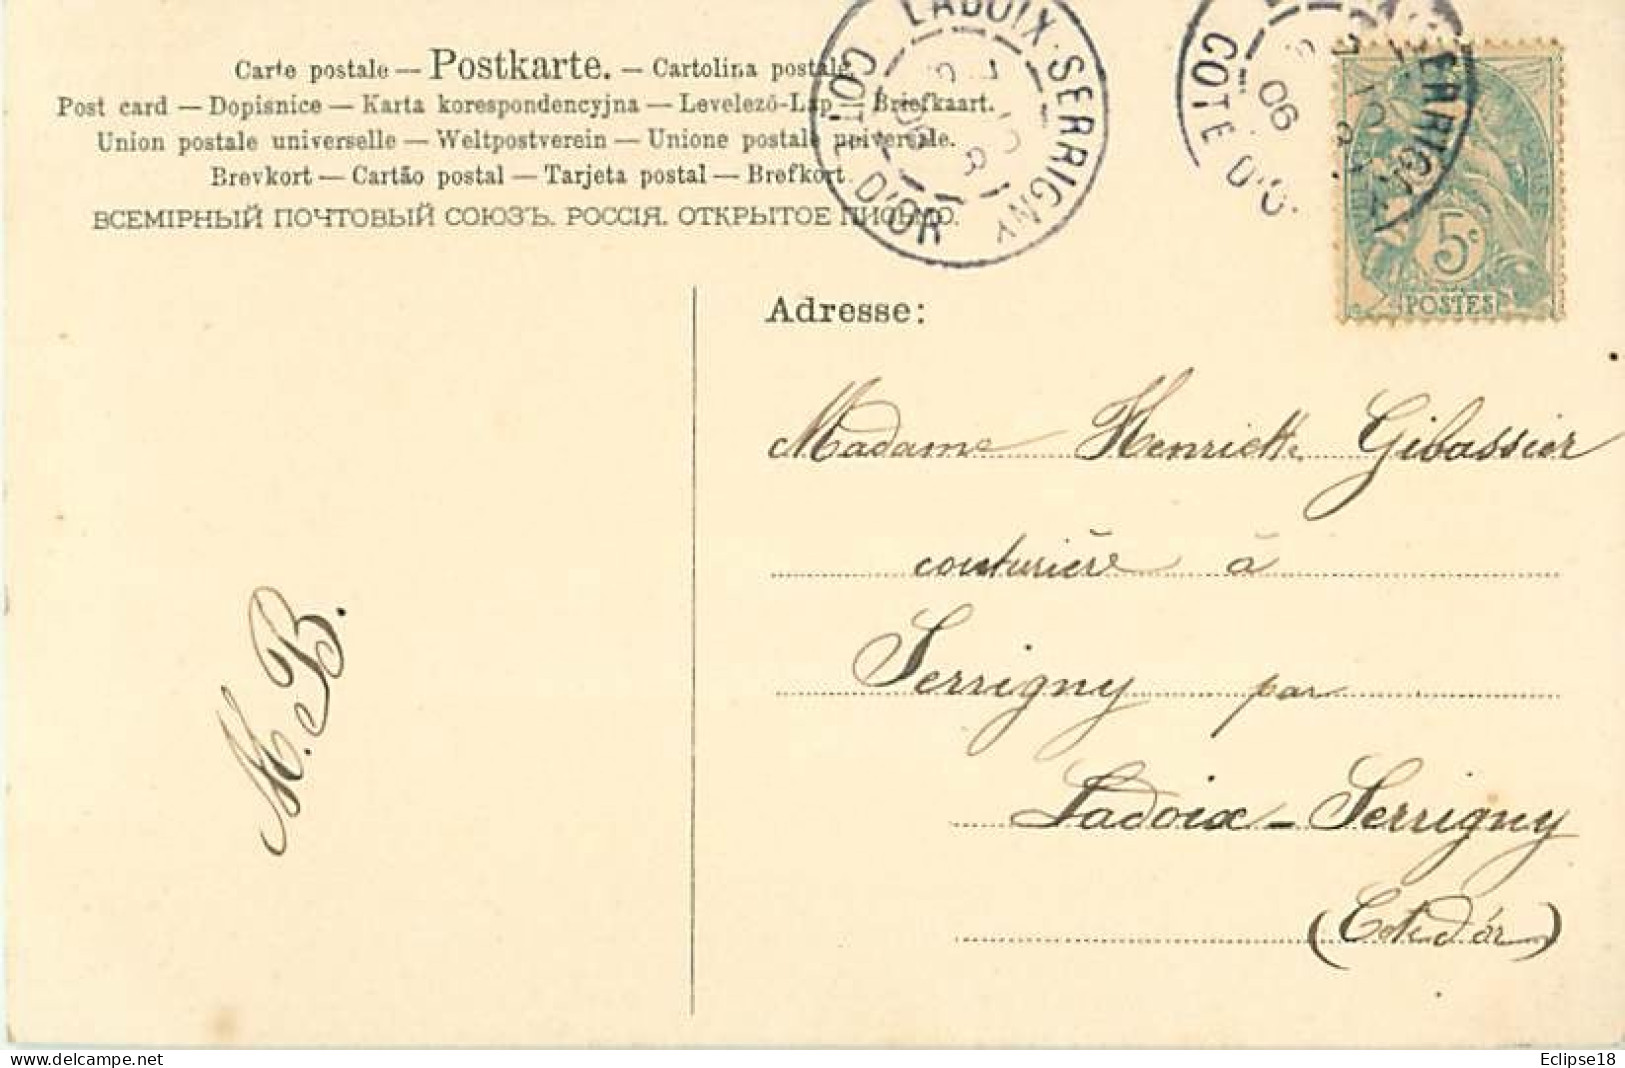 Carte postale — Postkarte. — Cartolina postale
Post card — Dopisnice — Karta korespondencyjna — Levelező-Lap — Briefkaart.
Union postale universelle — Weltpostverein — Unione postale universale.
Brevkort — Cartão postal — Tarjeta postal — Brefkort
ВСЕМІРНЫЙ ПОЧТОВЫЙ СОЮЗЪ. РОССІЯ. ОТКРЫТОЕ ПИСЬМО.
LADOIX-SERRIGNY
CÔTE D'OR
CÔTE D'O
06
5c
POSTES
Adresse:
Madame Henriette Gibassier
couturière à
Serrigny par
Ladoix-Serrigny
(Côte d'or)
M. B.
https://www.delcampe.net
Eclipse18